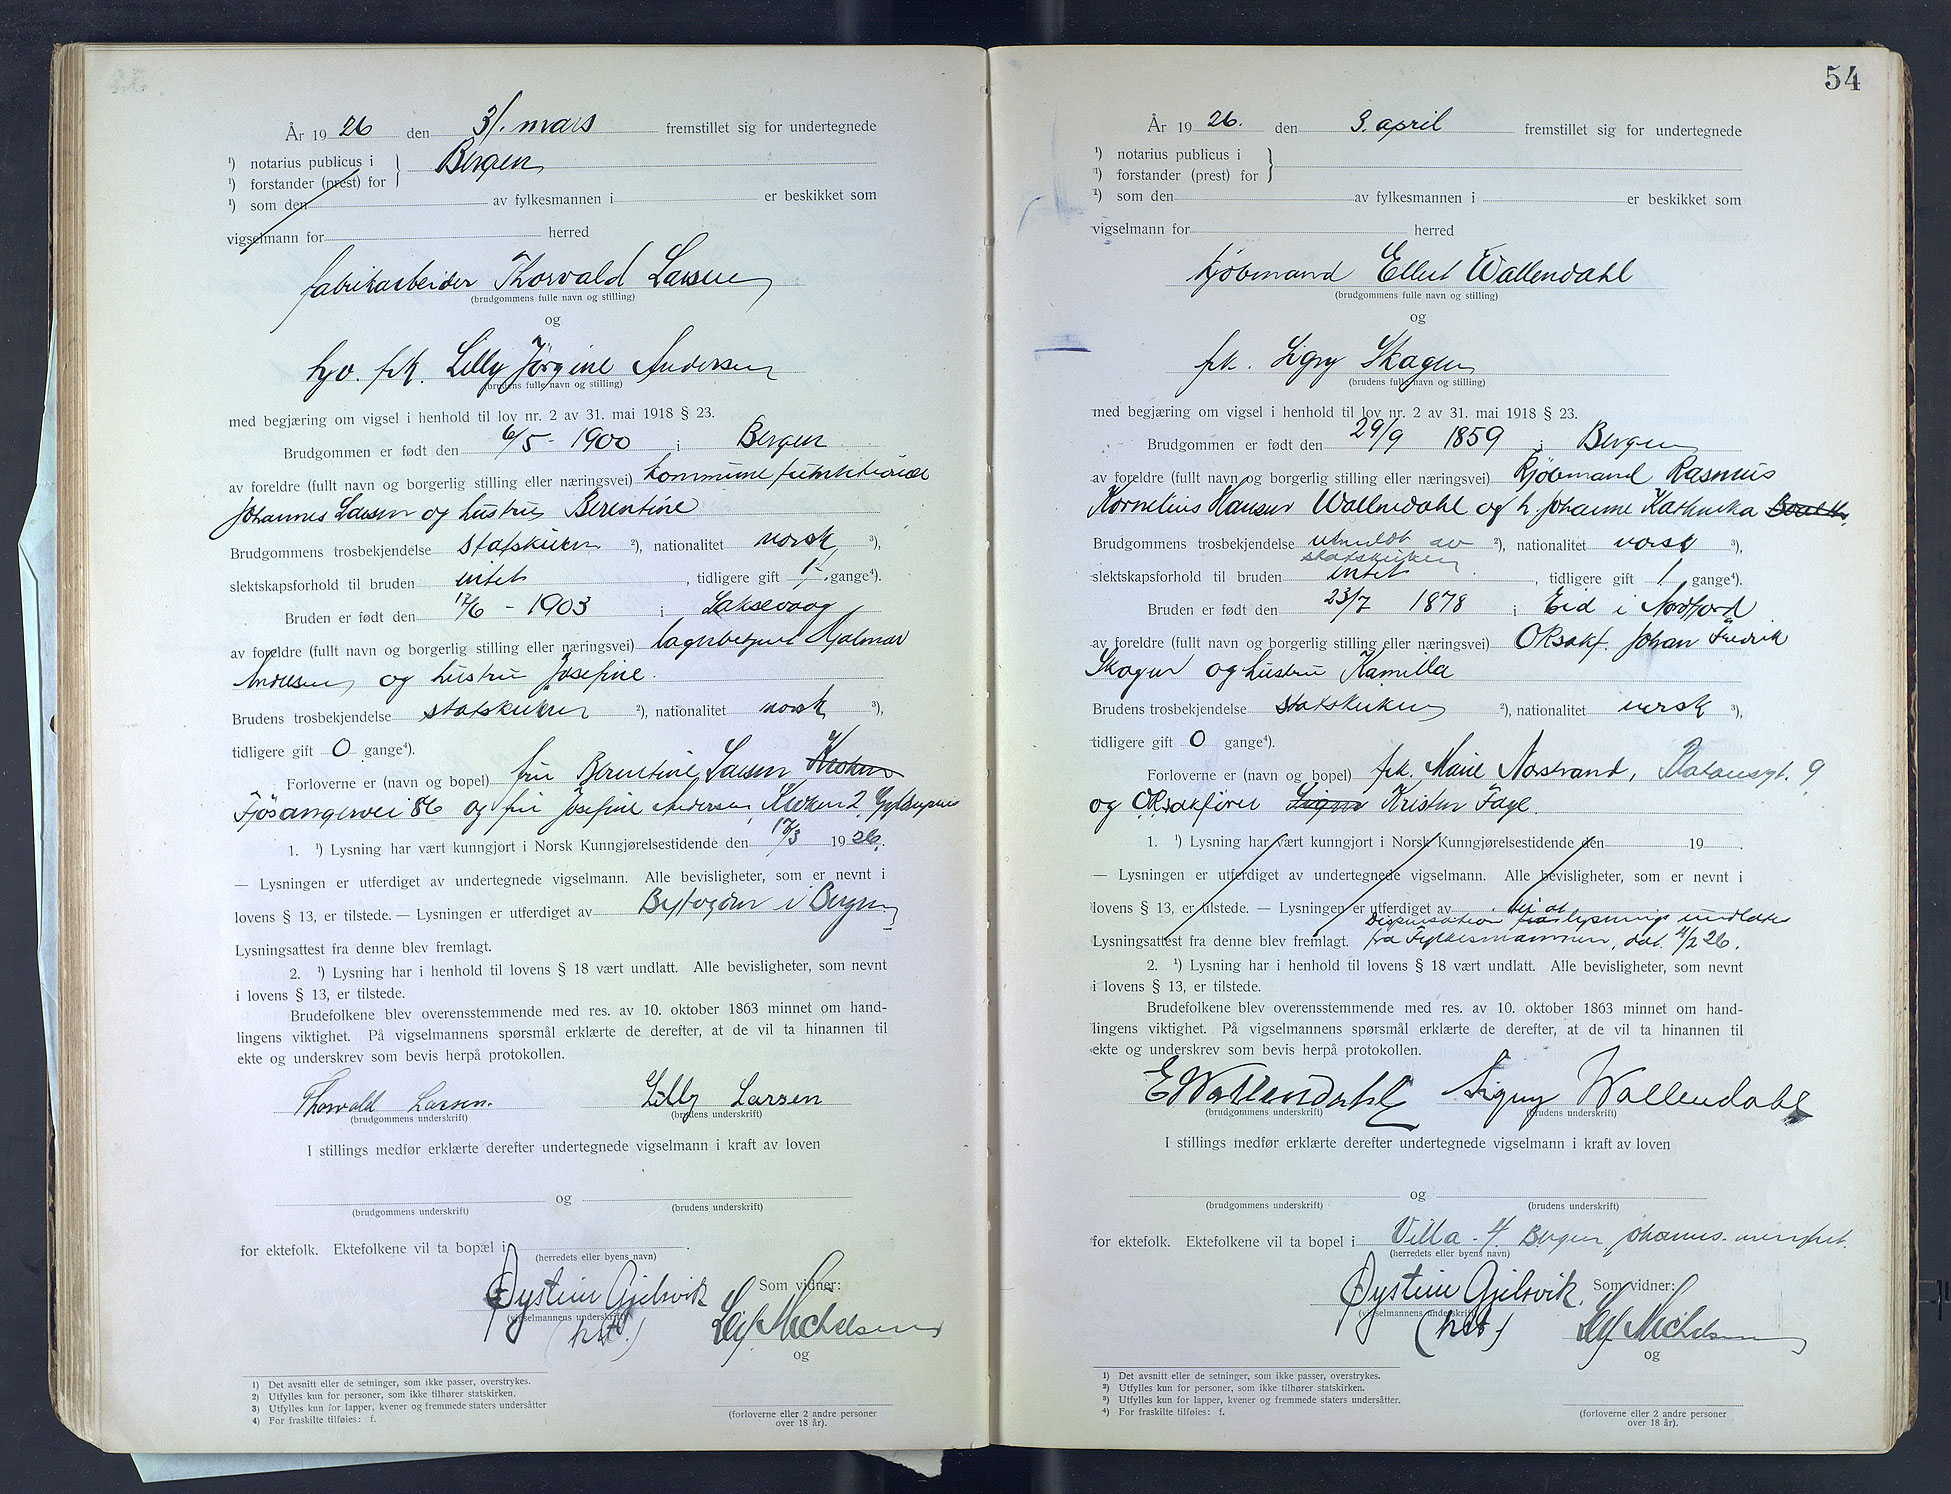 År 1926 den 31. mars fremstillet sig for undertegnede
¹) notarius publicus i
Bergen
¹) forstander (prest) for
¹) som den av fylkesmannen i er beskikket som
vigselmann for herred
fabrikarbeider Thorvald Larsen
(brudgommens fulle navn og stilling)
og
hjv. frk. Lilly Jörgine Andersen
(brudens fulle navn og stilling)
med begjæring om vigsel i henhold til lov nr. 2 av 31. mai 1918 § 23.
Brudgommen er født den 6/5 - 1900 i Bergen
av foreldre (fullt navn og borgerlig stilling eller næringsvei) kommunefunktionær
Johannes Larsen og hustru Berentine
Brudgommens trosbekjendelse statskirken ²), nationalitet norsk ³),
slektskapsforhold til bruden intet, tidligere gift 1 gange⁴).
Bruden er født den 12/6 - 1903 i Laksevaag
av foreldre (fullt navn og borgerlig stilling eller næringsvei) lagerbetjent Hjalmar
Andersen og hustru Josefine.
Brudens trosbekjendelse statskirken ²), nationalitet norsk ³),
tidligere gift 0 gange⁴).
Forloverne er (navn og bopel) fru Berentine Larsen Kroken
Fjösangervei 86 og fru Josefine Andersen, Kroken 2, Gyldenpris
1. ¹) Lysning har vært kunngjort i Norsk Kunngjørelsestidende den 17/3 1926.
— Lysningen er utferdiget av undertegnede vigselmann. Alle bevisligheter, som er nevnt i
lovens § 13, er tilstede. — Lysningen er utferdiget av Byfogden i Bergen
Lysningsattest fra denne blev fremlagt.
2. ¹) Lysning har i henhold til lovens § 18 vært undlatt. Alle bevisligheter, som nevnt
i lovens § 13, er tilstede.
Brudefolkene blev overensstemmende med res. av 10. oktober 1863 minnet om hand-
lingens viktighet. På vigselmannens spørsmål erklærte de derefter, at de vil ta hinannen til
ekte og underskrev som bevis herpå protokollen.
Thorvald Larsen. Lilly Larsen
(brudgommens underskrift) (brudens underskrift)
I stillings medfør erklærte derefter undertegnede vigselmann i kraft av loven
og
(brudgommens underskrift) (brudens underskrift)
for ektefolk. Ektefolkene vil ta bopæl i
(herredets eller byens navn)
Øystein Gjelsvik Som vidner:
(vigselmannens underskrift)
Leif Michelsen
og
¹) Det avsnitt eller de setninger, som ikke passer, overstrykes.
²) Utfylles kun for personer, som ikke tilhører statskirken.
³) Utfylles kun for lapper, kvener og fremmede staters undersåtter
⁴) For fraskilte tilføies: f.
(forloverne eller 2 andre personer
over 18 år).
54
År 1926. den 3. april fremstillet sig for undertegnede
¹) notarius publicus i
¹) forstander (prest) for
¹) som den av fylkesmannen i er beskikket som
vigselmann for herred
kjøbmand Ellert Wallendahl
(brudgommens fulle navn og stilling)
og
frk. Signy Skagen
(brudens fulle navn og stilling)
med begjæring om vigsel i henhold til lov nr. 2 av 31. mai 1918 § 23.
Brudgommen er født den 29/9 1859 i Bergen
av foreldre (fullt navn og borgerlig stilling eller næringsvei) Kjøbmand Rasmus
Kornelius Hansen Wallendahl og h. Johanne Kathinka
Brudgommens trosbekjendelse utmeldt av ²), nationalitet norsk ³),
statskirken
slektskapsforhold til bruden intet, tidligere gift 1 gange⁴).
Bruden er født den 23/7 1878 i Eid i Nordfjord
av foreldre (fullt navn og borgerlig stilling eller næringsvei) ORsakf. Johan Fredrik
Skagen og hustru Kamilla
Brudens trosbekjendelse statskirken ²), nationalitet norsk ³),
tidligere gift 0 gange⁴).
Forloverne er (navn og bopel) frk. Marie Norstrand, Platousgt. 9
og ORsakfører Kristen Faye.
1. ¹) Lysning har vært kunngjort i Norsk Kunngjørelsestidende den 19 .
— Lysningen er utferdiget av undertegnede vigselmann. Alle bevisligheter, som er nevnt i
lovens § 13, er tilstede. — Lysningen er utferdiget av
Dispensation til at lysning undlates
Lysningsattest fra denne blev fremlagt. fra Fylkesmannen, dat. 4/2 26.
2. ¹) Lysning har i henhold til lovens § 18 vært undlatt. Alle bevisligheter, som nevnt
i lovens § 13, er tilstede.
Brudefolkene blev overensstemmende med res. av 10. oktober 1863 minnet om hand-
lingens viktighet. På vigselmannens spørsmål erklærte de derefter, at de vil ta hinannen til
ekte og underskrev som bevis herpå protokollen.
E Wallendahl Signy Wallendahl
(brudgommens underskrift) (brudens underskrift)
I stillings medfør erklærte derefter undertegnede vigselmann i kraft av loven
og
(brudgommens underskrift) (brudens underskrift)
for ektefolk. Ektefolkene vil ta bopel i Villa Bergen
(herredets eller byens navn)
Øystein Gjelsvik Som vidner:
(vigselmannens underskrift)
Leif Michelsen
og
¹) Det avsnitt eller de setninger, som ikke passer, overstrykes.
²) Utfylles kun for personer, som ikke tilhører statskirken.
³) Utfylles kun for lapper, kvener og fremmede staters undersåtter.
⁴) For fraskilte tilføies: f.
(forloverne eller 2 andre personer
over 18 år).